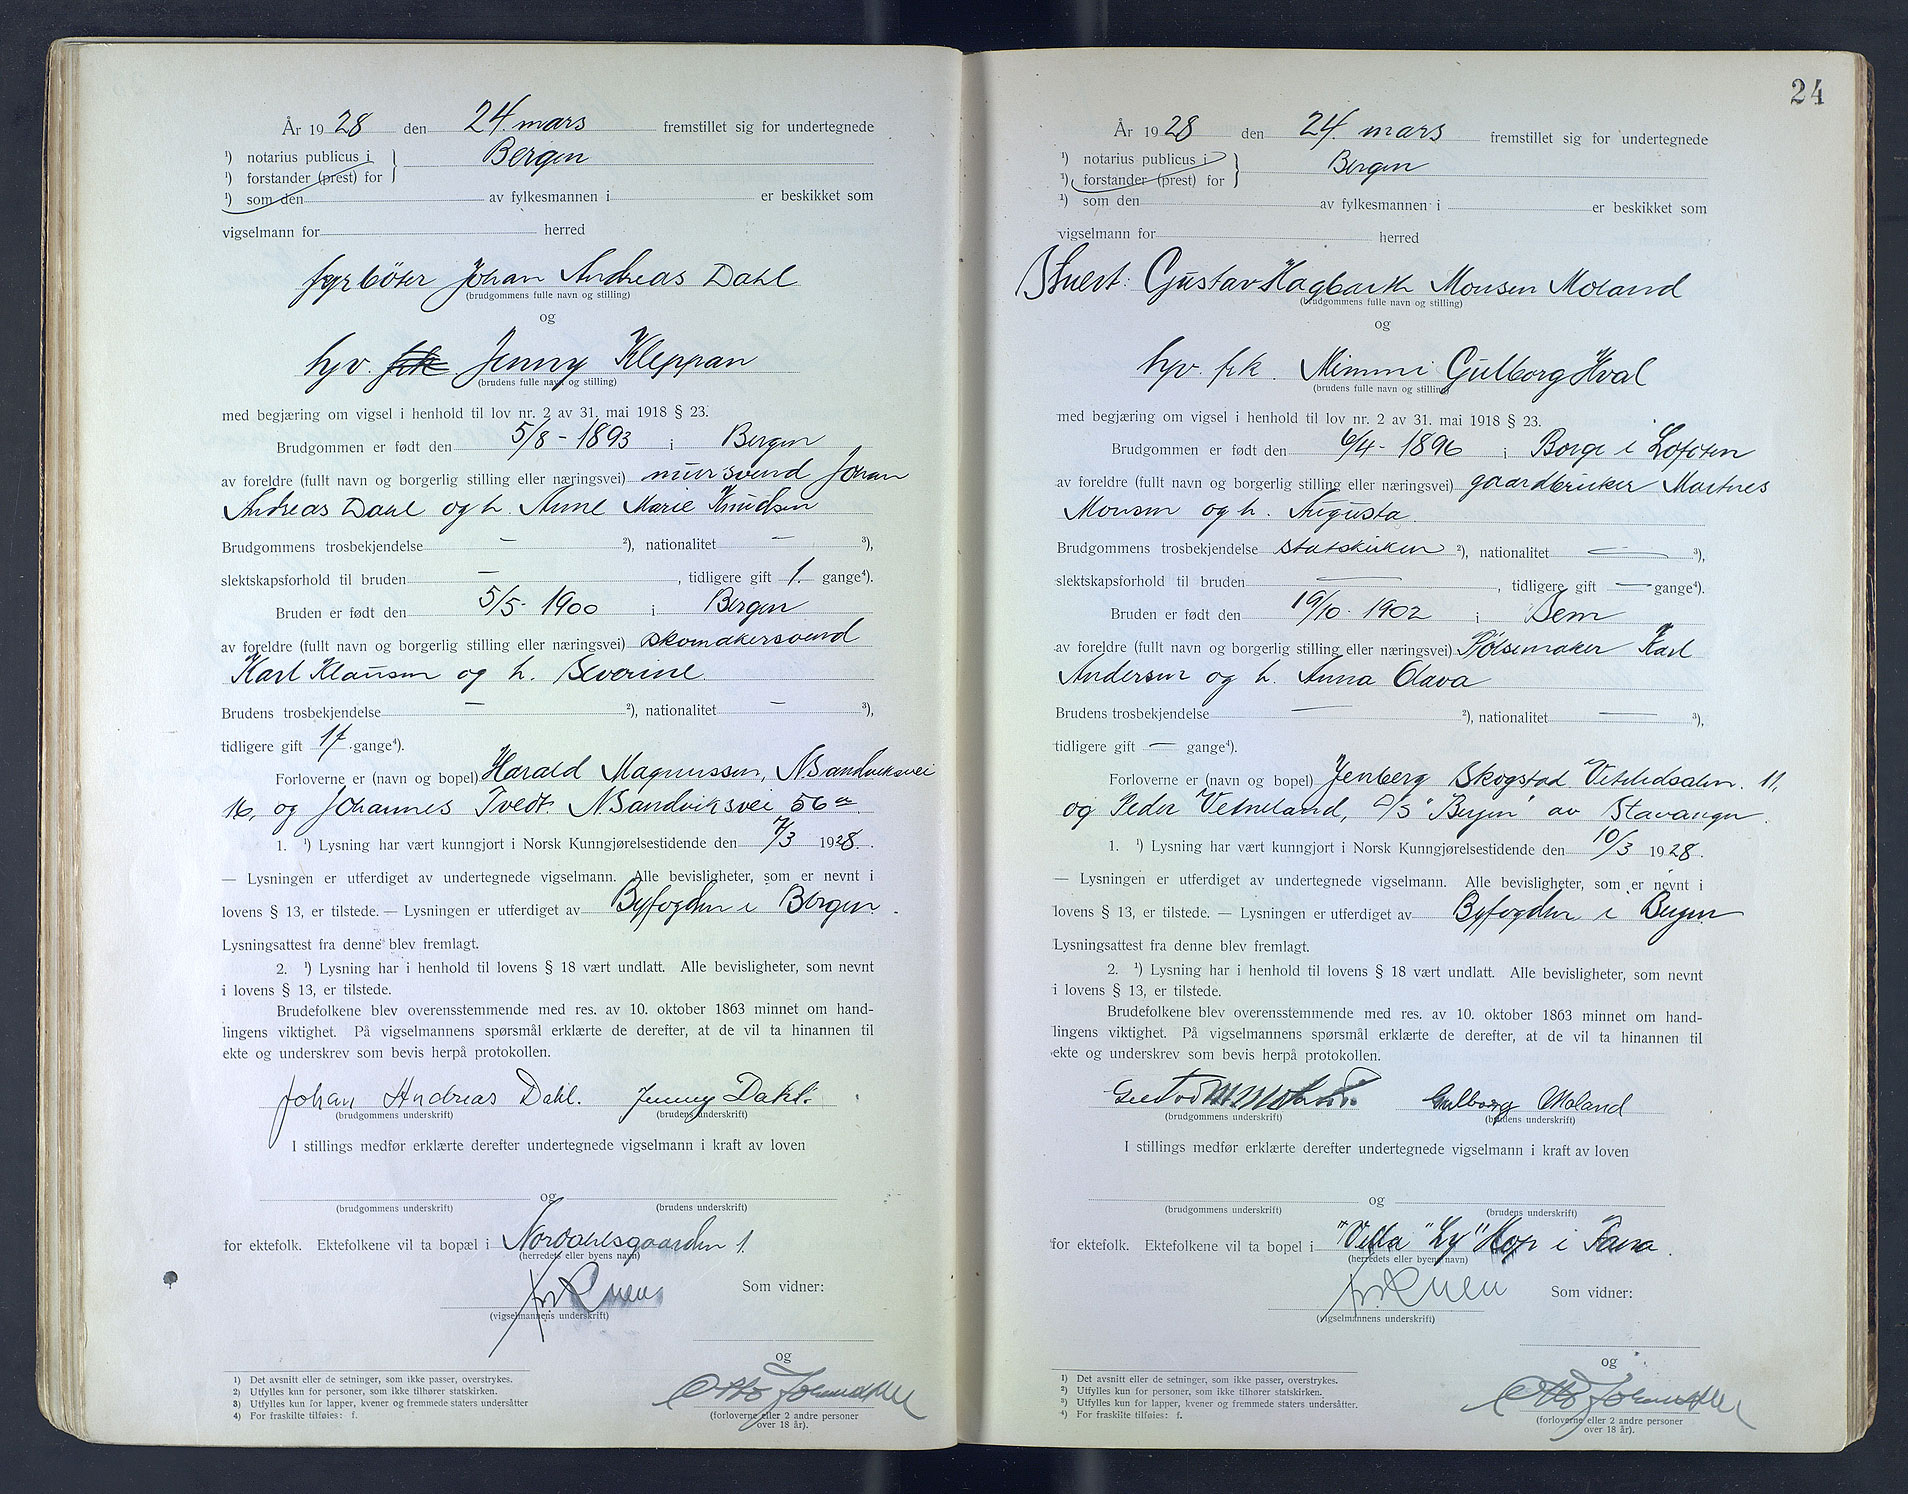 År 1928 den 24. mars fremstillet sig for undertegnede
¹) notarius publicus i Bergen
¹) forstander (prest) for
¹) som den av fylkesmannen i er beskikket som
vigselmann for herred
fyrbøter Johan Andreas Dahl
(brudgommens fulle navn og stilling)
og
hjv. frk Jenny Kleppan
(brudens fulle navn og stilling)
med begjæring om vigsel i henhold til lov nr. 2 av 31. mai 1918 § 23.
Brudgommen er født den 5/8 - 1893 i Bergen
av foreldre (fullt navn og borgerlig stilling eller næringsvei) mursvend Johan
Andreas Dahl og h. Anne Marie Knudsen
Brudgommens trosbekjendelse — ²), nationalitet — ³),
slektskapsforhold til bruden — , tidligere gift 1. gange⁴).
Bruden er født den 5/5 - 1900 i Bergen
av foreldre (fullt navn og borgerlig stilling eller næringsvei) skomakersvend
Karl Klausen og h. Severine
Brudens trosbekjendelse — ²), nationalitet — ³),
tidligere gift 1f gange⁴).
Forloverne er (navn og bopel) Harald Magnussen, N Sandviksvei
16, og Johannes Tvedt. N Sandviksvei 56 a
1. ¹) Lysning har vært kunngjort i Norsk Kunngjørelsestidende den 7/3 1928.
— Lysningen er utferdiget av undertegnede vigselmann. Alle bevisligheter, som er nevnt i
lovens § 13, er tilstede. — Lysningen er utferdiget av Byfogden i Bergen.
Lysningsattest fra denne blev fremlagt.
2. ¹) Lysning har i henhold til lovens § 18 vært undlatt. Alle bevisligheter, som nevnt
i lovens § 13, er tilstede.
Brudefolkene blev overensstemmende med res. av 10. oktober 1863 minnet om hand-
lingens viktighet. På vigselmannens spørsmål erklærte de derefter, at de vil ta hinannen til
ekte og underskrev som bevis herpå protokollen.
Johan Andreas Dahl. Jenny Dahl.
(brudgommens underskrift) (brudens underskrift)
I stillings medfør erklærte derefter undertegnede vigselmann i kraft av loven
og
(brudgommens underskrift) (brudens underskrift)
for ektefolk. Ektefolkene vil ta bopæl i Nordahlsgaarden 1.
(herredets eller byens navn)
Som vidner:
(vigselmannens underskrift)
og
Otto
(forloverne eller 2 andre personer
over 18 år).
1) Det avsnitt eller de setninger, som ikke passer, overstrykes.
2) Utfylles kun for personer, som ikke tilhører statskirken.
3) Utfylles kun for lapper, kvener og fremmede staters undersåtter
4) For fraskilte tilføies: f.
24
År 1928 den 24. mars fremstillet sig for undertegnede
¹) notarius publicus i Bergen
¹) forstander (prest) for
¹) som den av fylkesmannen i er beskikket som
vigselmann for herred
Stuert: Gustav Hagbarth Monsen Moland
(brudgommens fulle navn og stilling)
og
hjv. frk. Mimmi Gulborg Hval
(brudens fulle navn og stilling)
med begjæring om vigsel i henhold til lov nr. 2 av 31. mai 1918 § 23.
Brudgommen er født den 6/4 - 1896 i Borge i Lofoten
av foreldre (fullt navn og borgerlig stilling eller næringsvei) gaardbruker Martnes
Monsen og h. Augusta.
Brudgommens trosbekjendelse statskirken ²), nationalitet — ³),
slektskapsforhold til bruden — , tidligere gift — gange⁴).
Bruden er født den 19/10 - 1902 i Sem
av foreldre (fullt navn og borgerlig stilling eller næringsvei) Pølsemaker Karl
Andersen og h. Anna Olava
Brudens trosbekjendelse — ²), nationalitet — ³),
tidligere gift — gange⁴).
Forloverne er (navn og bopel) Jenberg Skogstad 11,
og Peder Vetneland, D/S "Bergen" av Stavanger.
1. ¹) Lysning har vært kunngjort i Norsk Kunngjørelsestidende den 10/3 1928.
— Lysningen er utferdiget av undertegnede vigselmann. Alle bevisligheter, som er nevnt i
lovens § 13, er tilstede. — Lysningen er utferdiget av Byfogden i Bergen
Lysningsattest fra denne blev fremlagt.
2. ¹) Lysning har i henhold til lovens § 18 vært undlatt. Alle bevisligheter, som nevnt
i lovens § 13, er tilstede.
Brudefolkene blev overensstemmende med res. av 10. oktober 1863 minnet om hand-
lingens viktighet. På vigselmannens spørsmål erklærte de derefter, at de vil ta hinannen til
ekte og underskrev som bevis herpå protokollen.
Gustav M Moland. Gulborg Moland
(brudgommens underskrift) (brudens underskrift)
I stillings medfør erklærte derefter undertegnede vigselmann i kraft av loven
og
(brudgommens underskrift) (brudens underskrift)
for ektefolk. Ektefolkene vil ta bopel i "Villa "Ly" Hop i Fana.
(herredets eller byens navn)
Som vidner:
(vigselmannens underskrift)
og
Otto
(forloverne eller 2 andre personer
over 18 år).
¹) Det avsnitt eller de setninger, som ikke passer, overstrykes.
²) Utfylles kun for personer, som ikke tilhører statskirken.
³) Utfylles kun for lapper, kvener og fremmede staters undersåtter.
⁴) For fraskilte tilføies: f.